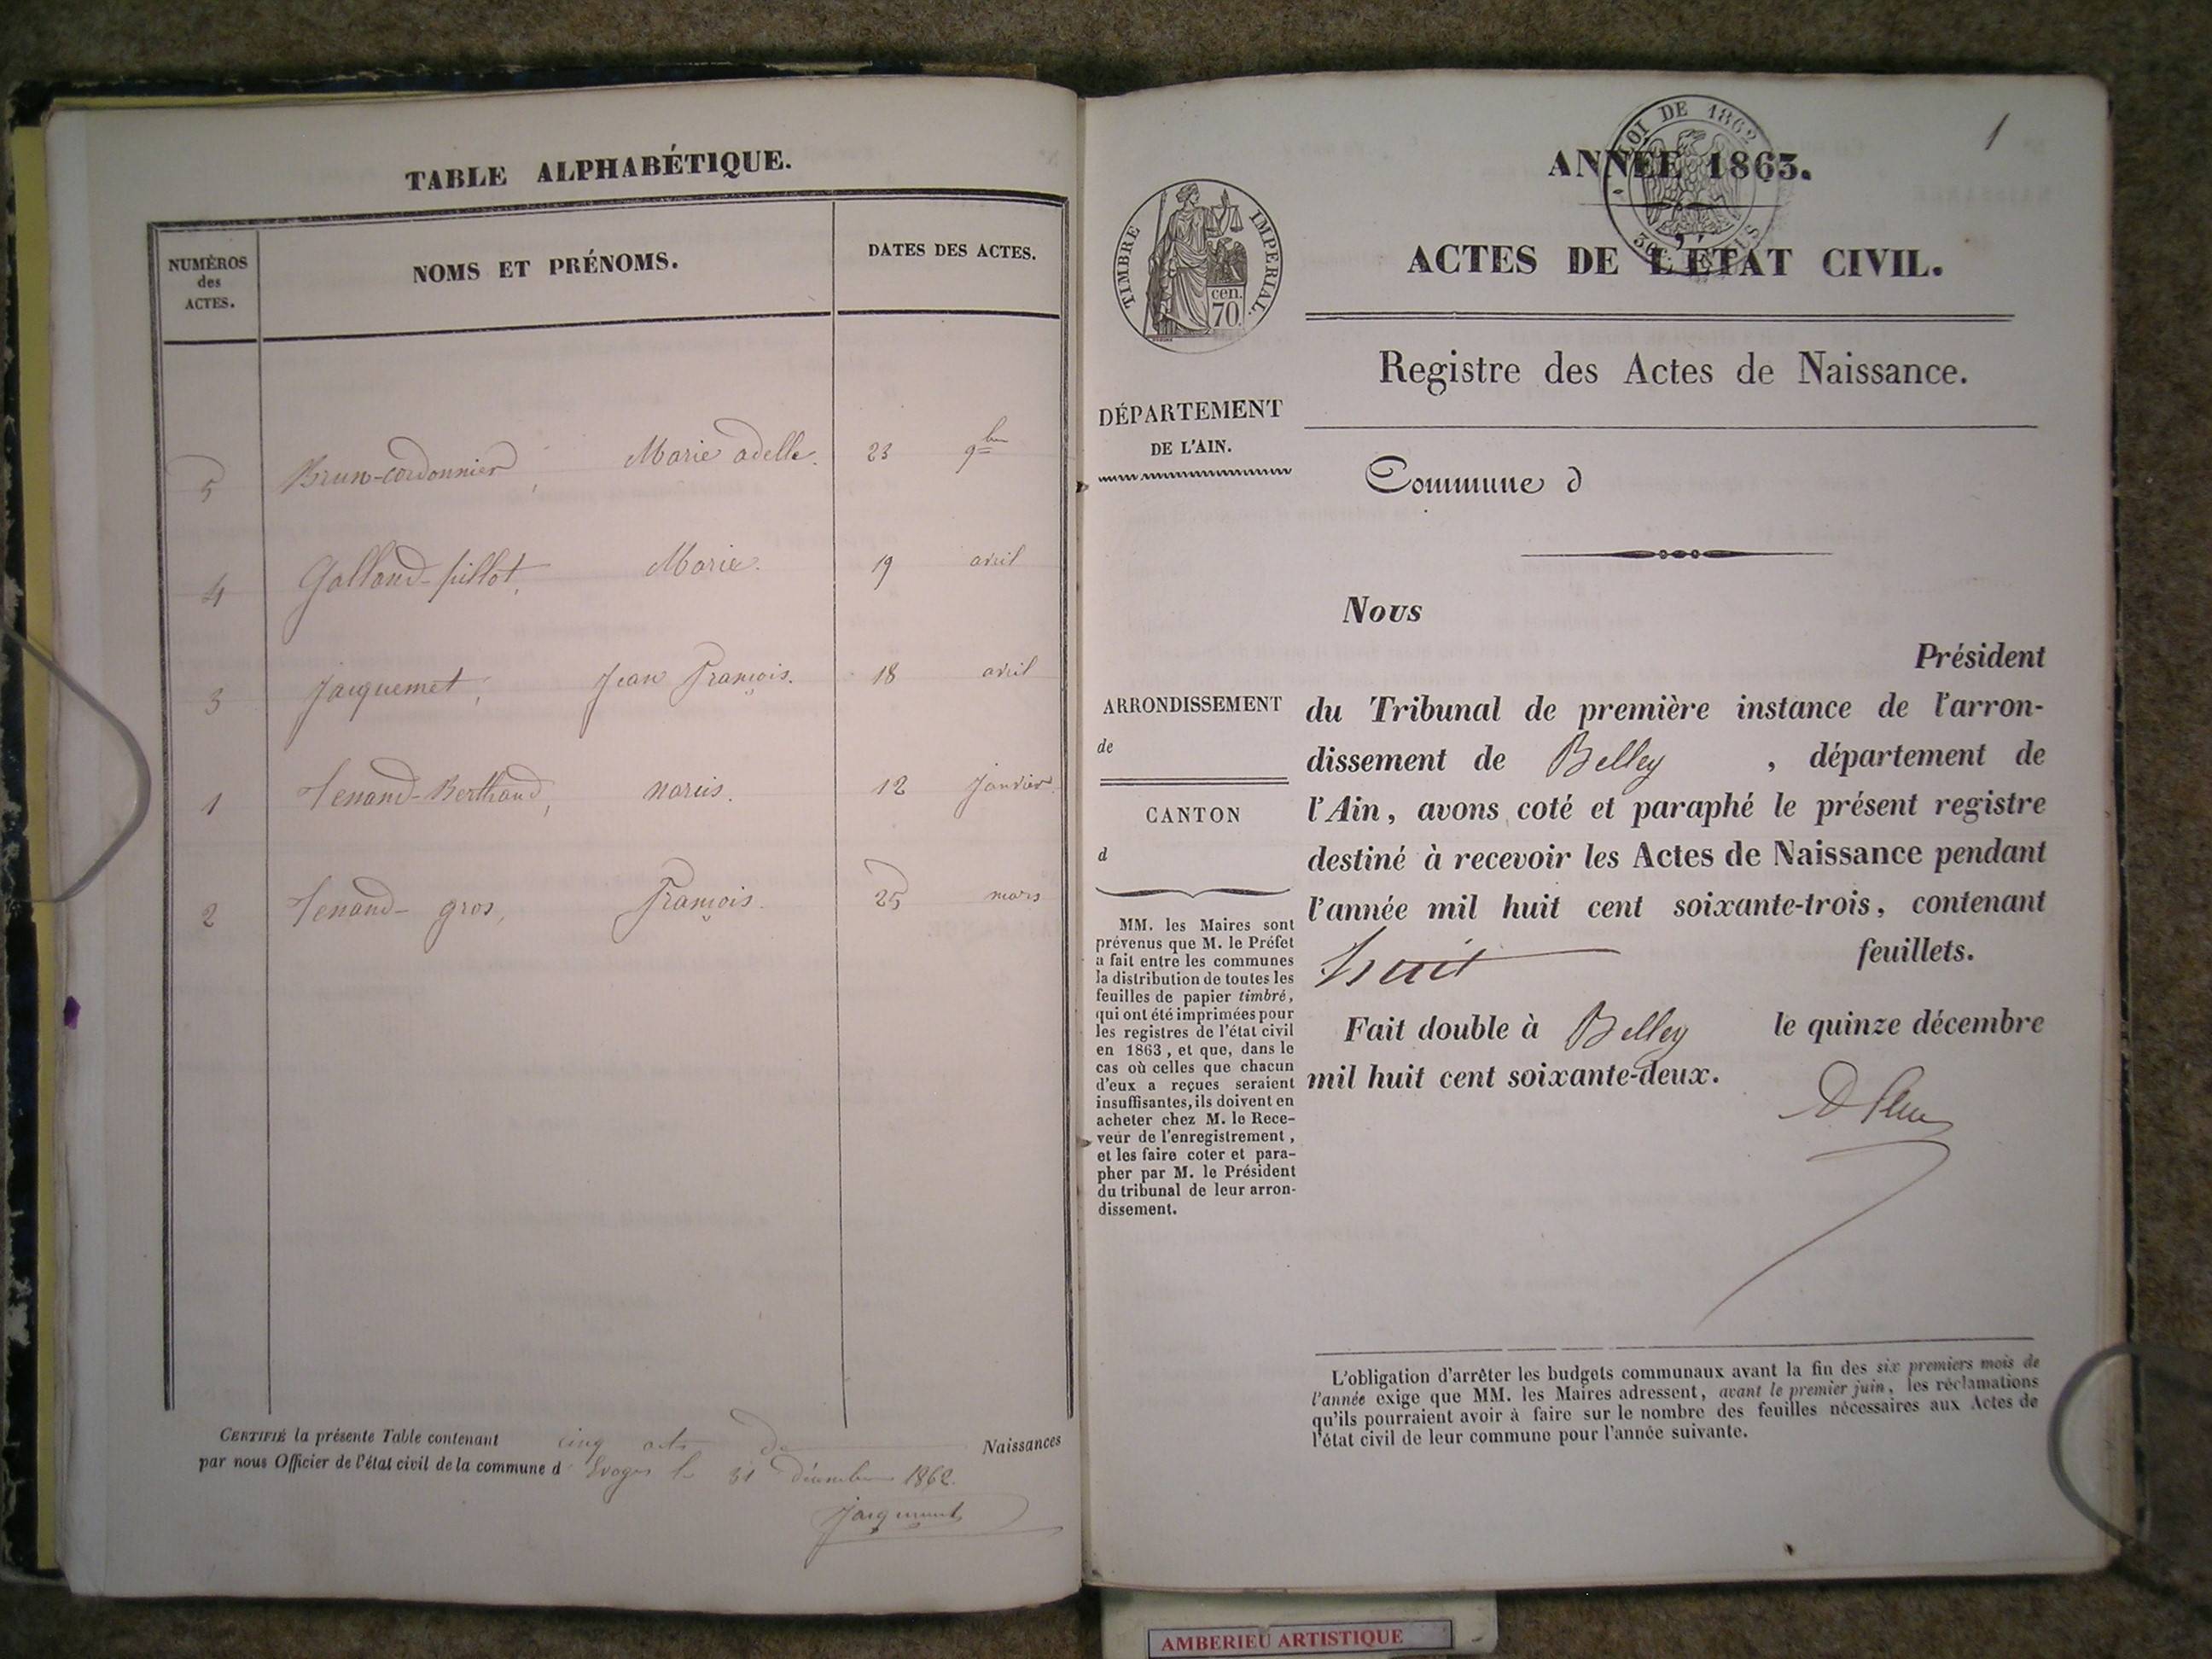 TABLE ALPHABÉTIQUE.
NUMÉROS
des
ACTES.
NOMS ET PRÉNOMS.
DATES DES ACTES.
5 Brun-cordonnier, Marie adelle. 23 9bre
4 Galland-pillot, Marie. 19 avril
3 Jacquemet, Jean François. 18 avril
1 Tenand-Berthand, narcis. 12 janvier.
2 Tenand-gros, François. 25 mars
CERTIFIÉ la présente Table contenant cinq acts de Naissances
par nous Officier de l'état civil de la commune d' Evoges le 31 décembre 1862.
Jacquemet
1
LOI DE 1862
ANNÉE 1863.
ACTES DE L'ÉTAT CIVIL.
TIMBRE IMPÉRIAL.
cen.
70.
Registre des Actes de Naissance.
DÉPARTEMENT
DE L'AIN.
Commune d
Nous
Président
ARRONDISSEMENT
de
CANTON
d
du Tribunal de première instance de l'arron-
dissement de Belley , département de
l'Ain, avons coté et paraphé le présent registre
destiné à recevoir les Actes de Naissance pendant
l'année mil huit cent soixante-trois, contenant
huit feuillets.
Fait double à Belley le quinze décembre
mil huit cent soixante-deux.
MM. les Maires sont
prévenus que M. le Préfet
a fait entre les communes
la distribution de toutes les
feuilles de papier timbré,
qui ont été imprimées pour
les registres de l'état civil
en 1863, et que, dans le
cas où celles que chacun
d'eux a reçues seraient
insuffisantes, ils doivent en
acheter chez M. le Rece-
veur de l'enregistrement,
et les faire coter et para-
pher par M. le Président
du tribunal de leur arron-
dissement.
L'obligation d'arrêter les budgets communaux avant la fin des six premiers mois de
l'année exige que MM. les Maires adressent, avant le premier juin, les réclamations
qu'ils pourraient avoir à faire sur le nombre des feuilles nécessaires aux Actes de
l'état civil de leur commune pour l'année suivante.
AMBERIEU ARTISTIQUE